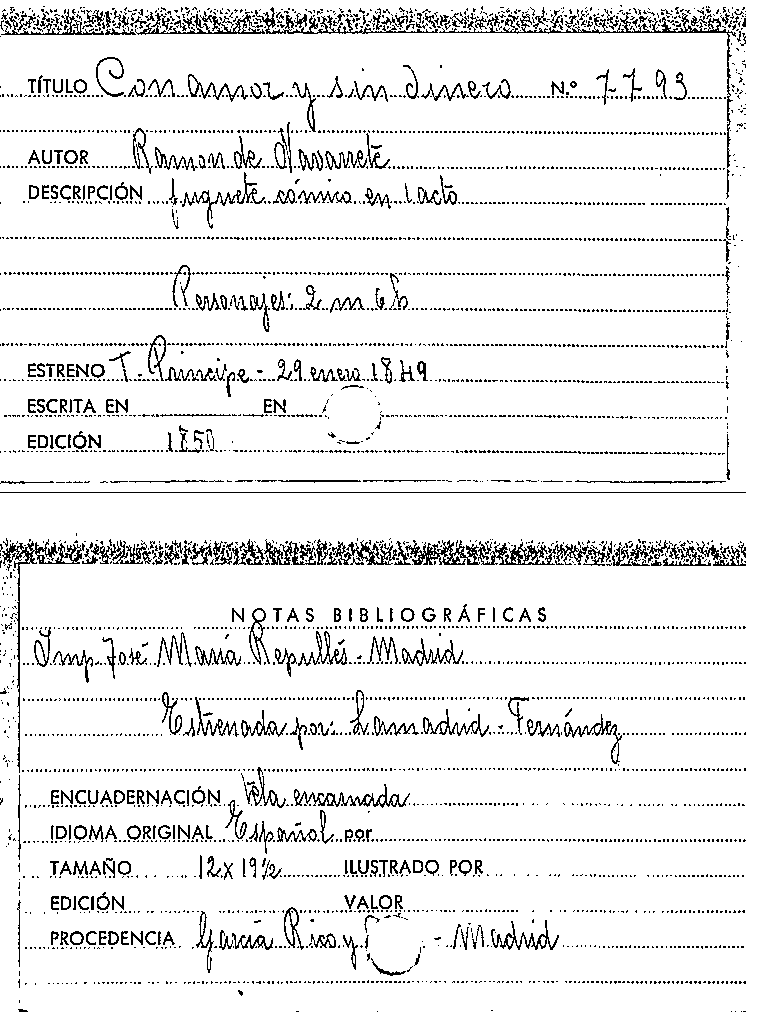 TÍTULO Con amor y sin dinero N.º 7793
AUTOR Ramon de Navarrete
DESCRIPCIÓN juguete cómico en 1 acto
Personajes: 2 m 6 h
ESTRENO T. Principe - 29 enero 1849
ESCRITA EN EN
EDICIÓN 1850
NOTAS BIBLIOGRÁFICAS
Imp. José María Repullés - Madrid
Estrenada por: Lamadrid - Fernández
ENCUADERNACIÓN Tela encarnada
IDIOMA ORIGINAL Español por
TAMAÑO 12 x 19½ ILUSTRADO POR
EDICIÓN VALOR
PROCEDENCIA García Rico y - Madrid